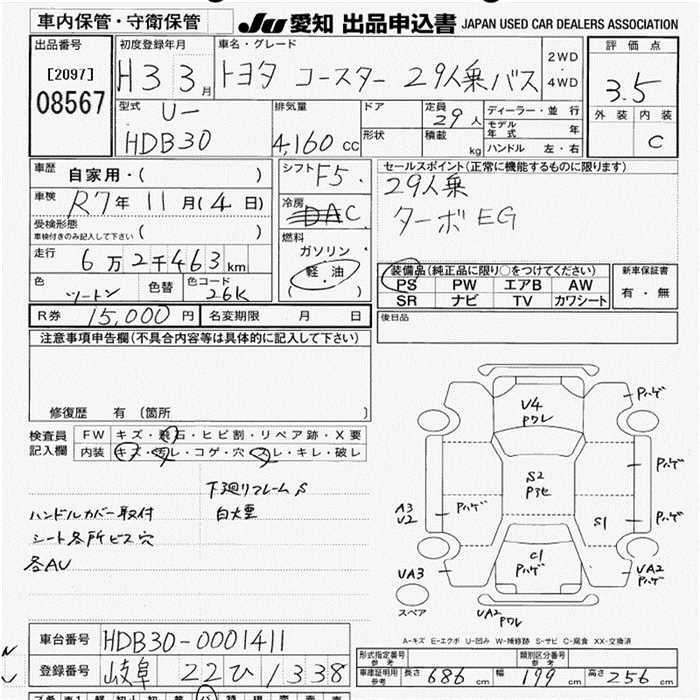 車内保管・守衛保管
JU 愛知 出品申込書 JAPAN USED CAR DEALERS ASSOCIATION
出品番号
[2097]
08567
初度登録年月
H3 3月
車名・グレード
トヨタ コースター 29人乗バス
2WD
・
4WD
評価点
3.5
外装 内装
C
型式
U-
HDB30
排気量
4,160 cc
ドア
形状
定員
29人
積載
kg
ディーラー・並行
モデル年式 年
ハンドル 左・右
車歴
自家用・( )
車検
R7年 11月(4日)
受検形態
車検付きのみ記入して下さい ( )
走行
6万2千463km
色
ツートン
色替
色コード
26K
シフト F5.
冷房
AC
燃料
ガソリン
・
軽・油
( )
セールスポイント(正常に機能するものに限ります)
29人乗
ターボEG
装備品(純正品に限り○をつけてください)
PS PW エアB AW
SR ナビ TV カワシート
新車保証書
有・無
R券 15,000円 名変期限 月 日
後日品
注意事項申告欄(不具合内容等は具体的に記入して下さい)
修復歴 有(箇所 )
検査員記入欄
FW キズ・飛石・ヒビ割・リペア跡・X要
内装 キズ・汚レ・コゲ・穴・スレ・キレ・破レ
下廻りフレームS
ハンドルカバー取付
シート各所ビス穴
各AU
V4
Pワレ
S2
Pハゲ
A3
U2
Pハゲ
S1
Pハゲ
Pハゲ
C1
Pハゲ
VA3
VA2
Pハゲ
VA2
Pワレ
スペア
A-キズ E-エクボ U-凹み W-補修跡 S-サビ C-腐食 XX-交換済
車台番号 HDB30-0001411
登録番号 岐阜 22ひ/338
型式指定番号
参考
類別区分番号
参考
車庫証明用
参考
長さ 686 cm 幅 199 cm 高さ 256 cm